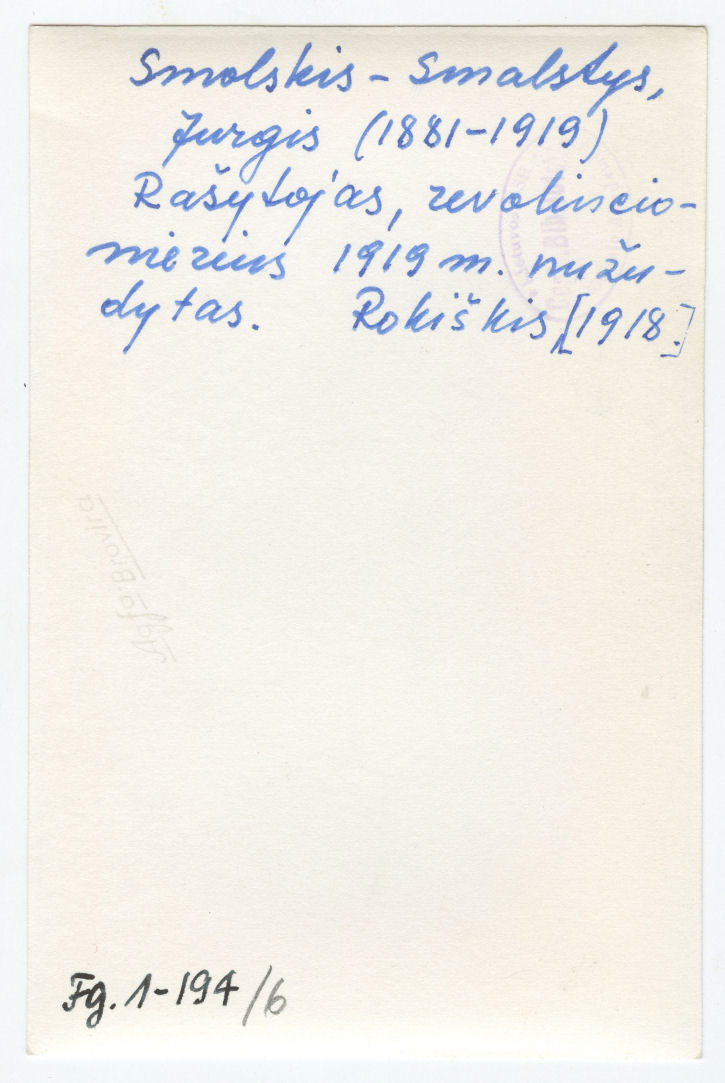 Smolskis - Smalstys,
Jurgis (1881-1919)
Rašytojas, revoliucio-
nierius 1919 m. nužu-
dytas. Rokiškis [1918.]
Agfa-Brovira
Fg. 1-194/6